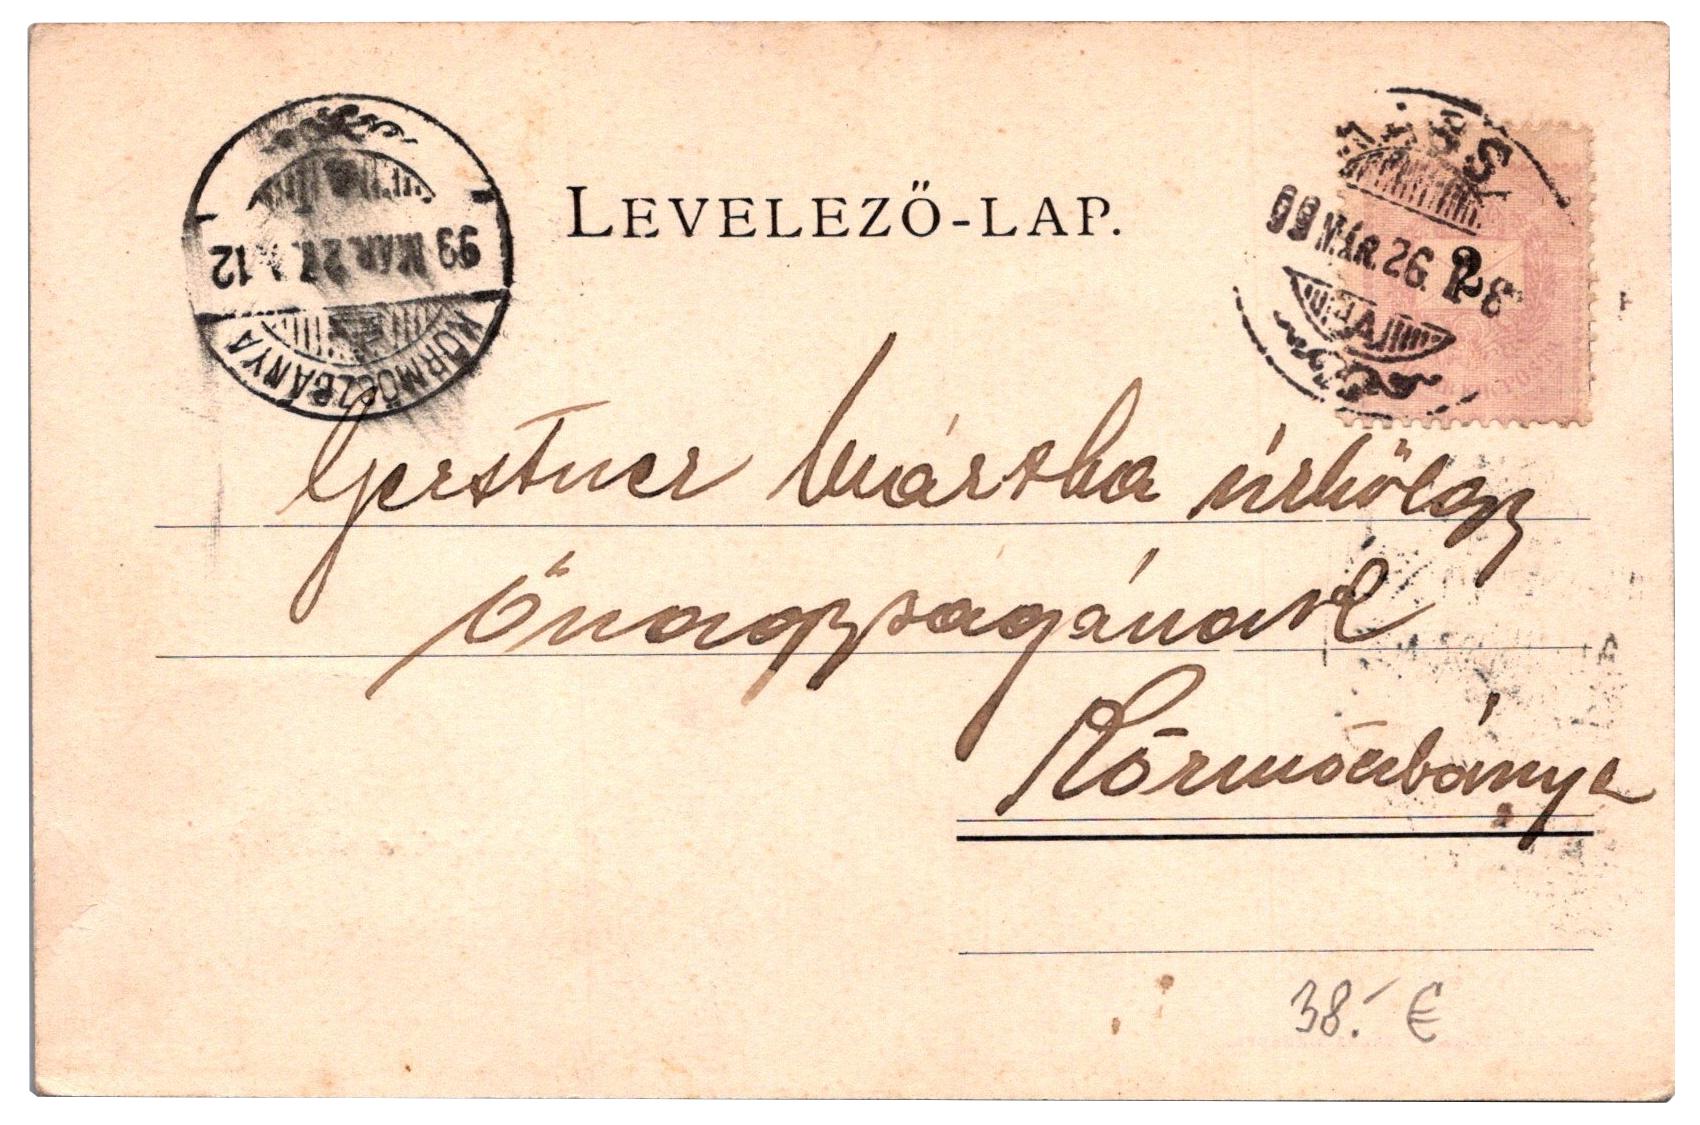 LEVELEZŐ-LAP.
KÖRMÖCZBÁNYA
99 MÁR. 27 12
99 MÁR. 26. 2
Gerstner Mártha úrhölgy
Őnagyságának
Körmöczbánya
38.- €